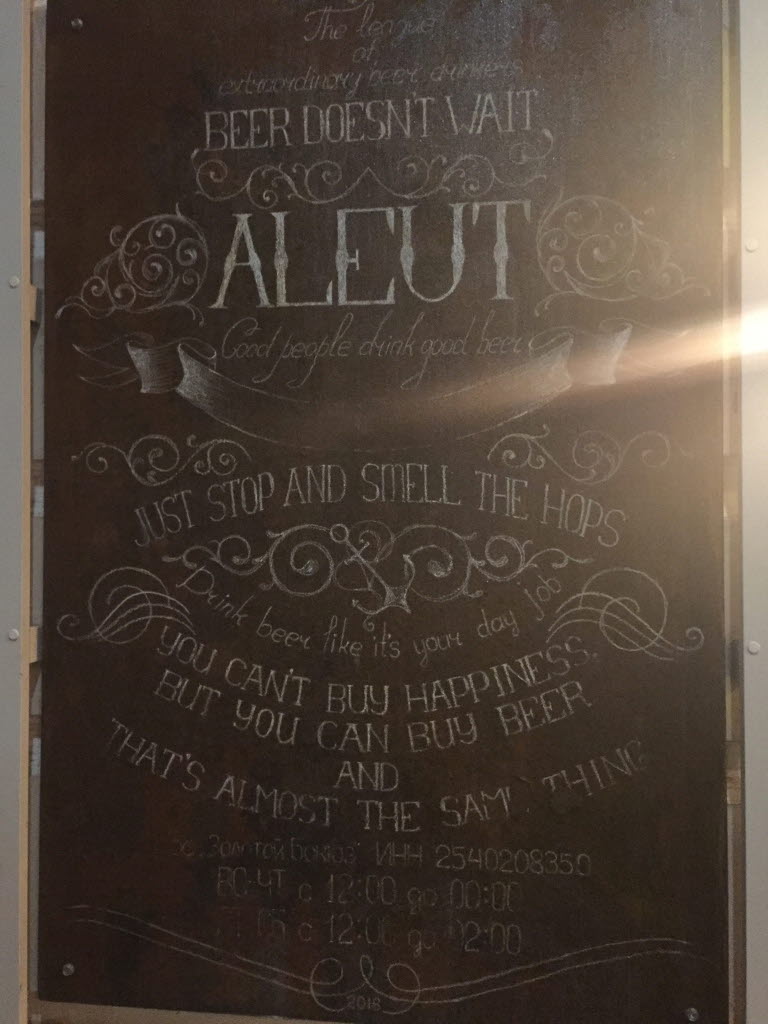 The league
of
extraordinary beer drinkers
BEER DOESN'T WAIT
ALEUT
Good people drink good beer
JUST STOP AND SMELL THE HOPS
Drink beer like it's your day job
YOU CAN'T BUY HAPPINESS.
BUT YOU CAN BUY BEER
AND
THAT'S ALMOST THE SAM THING
Золотой ИНН 2540208350
ВС-ЧТ с 12:00 до 00:00
ПТ-СБ с 12:00 до 02:00
2016